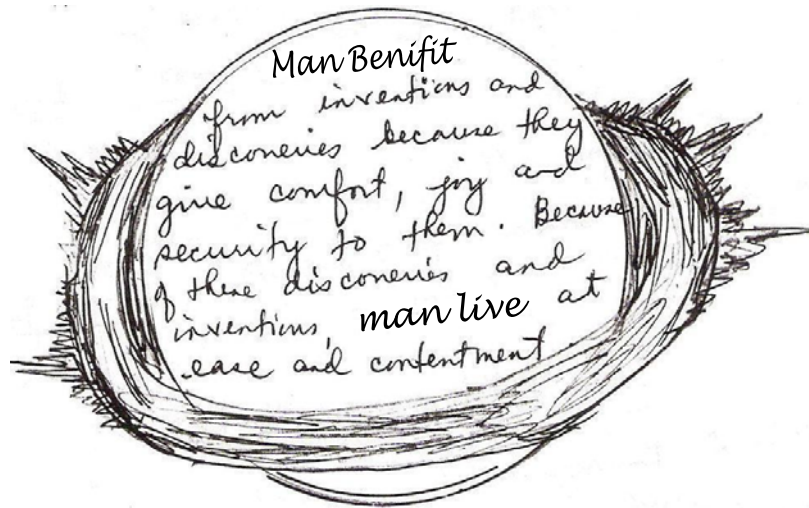 Man Benifit
from inventions and
disconeries because they
give comfort, joy and
security to them. Because
of these disconeries and
inventions, man live at
ease and contentment